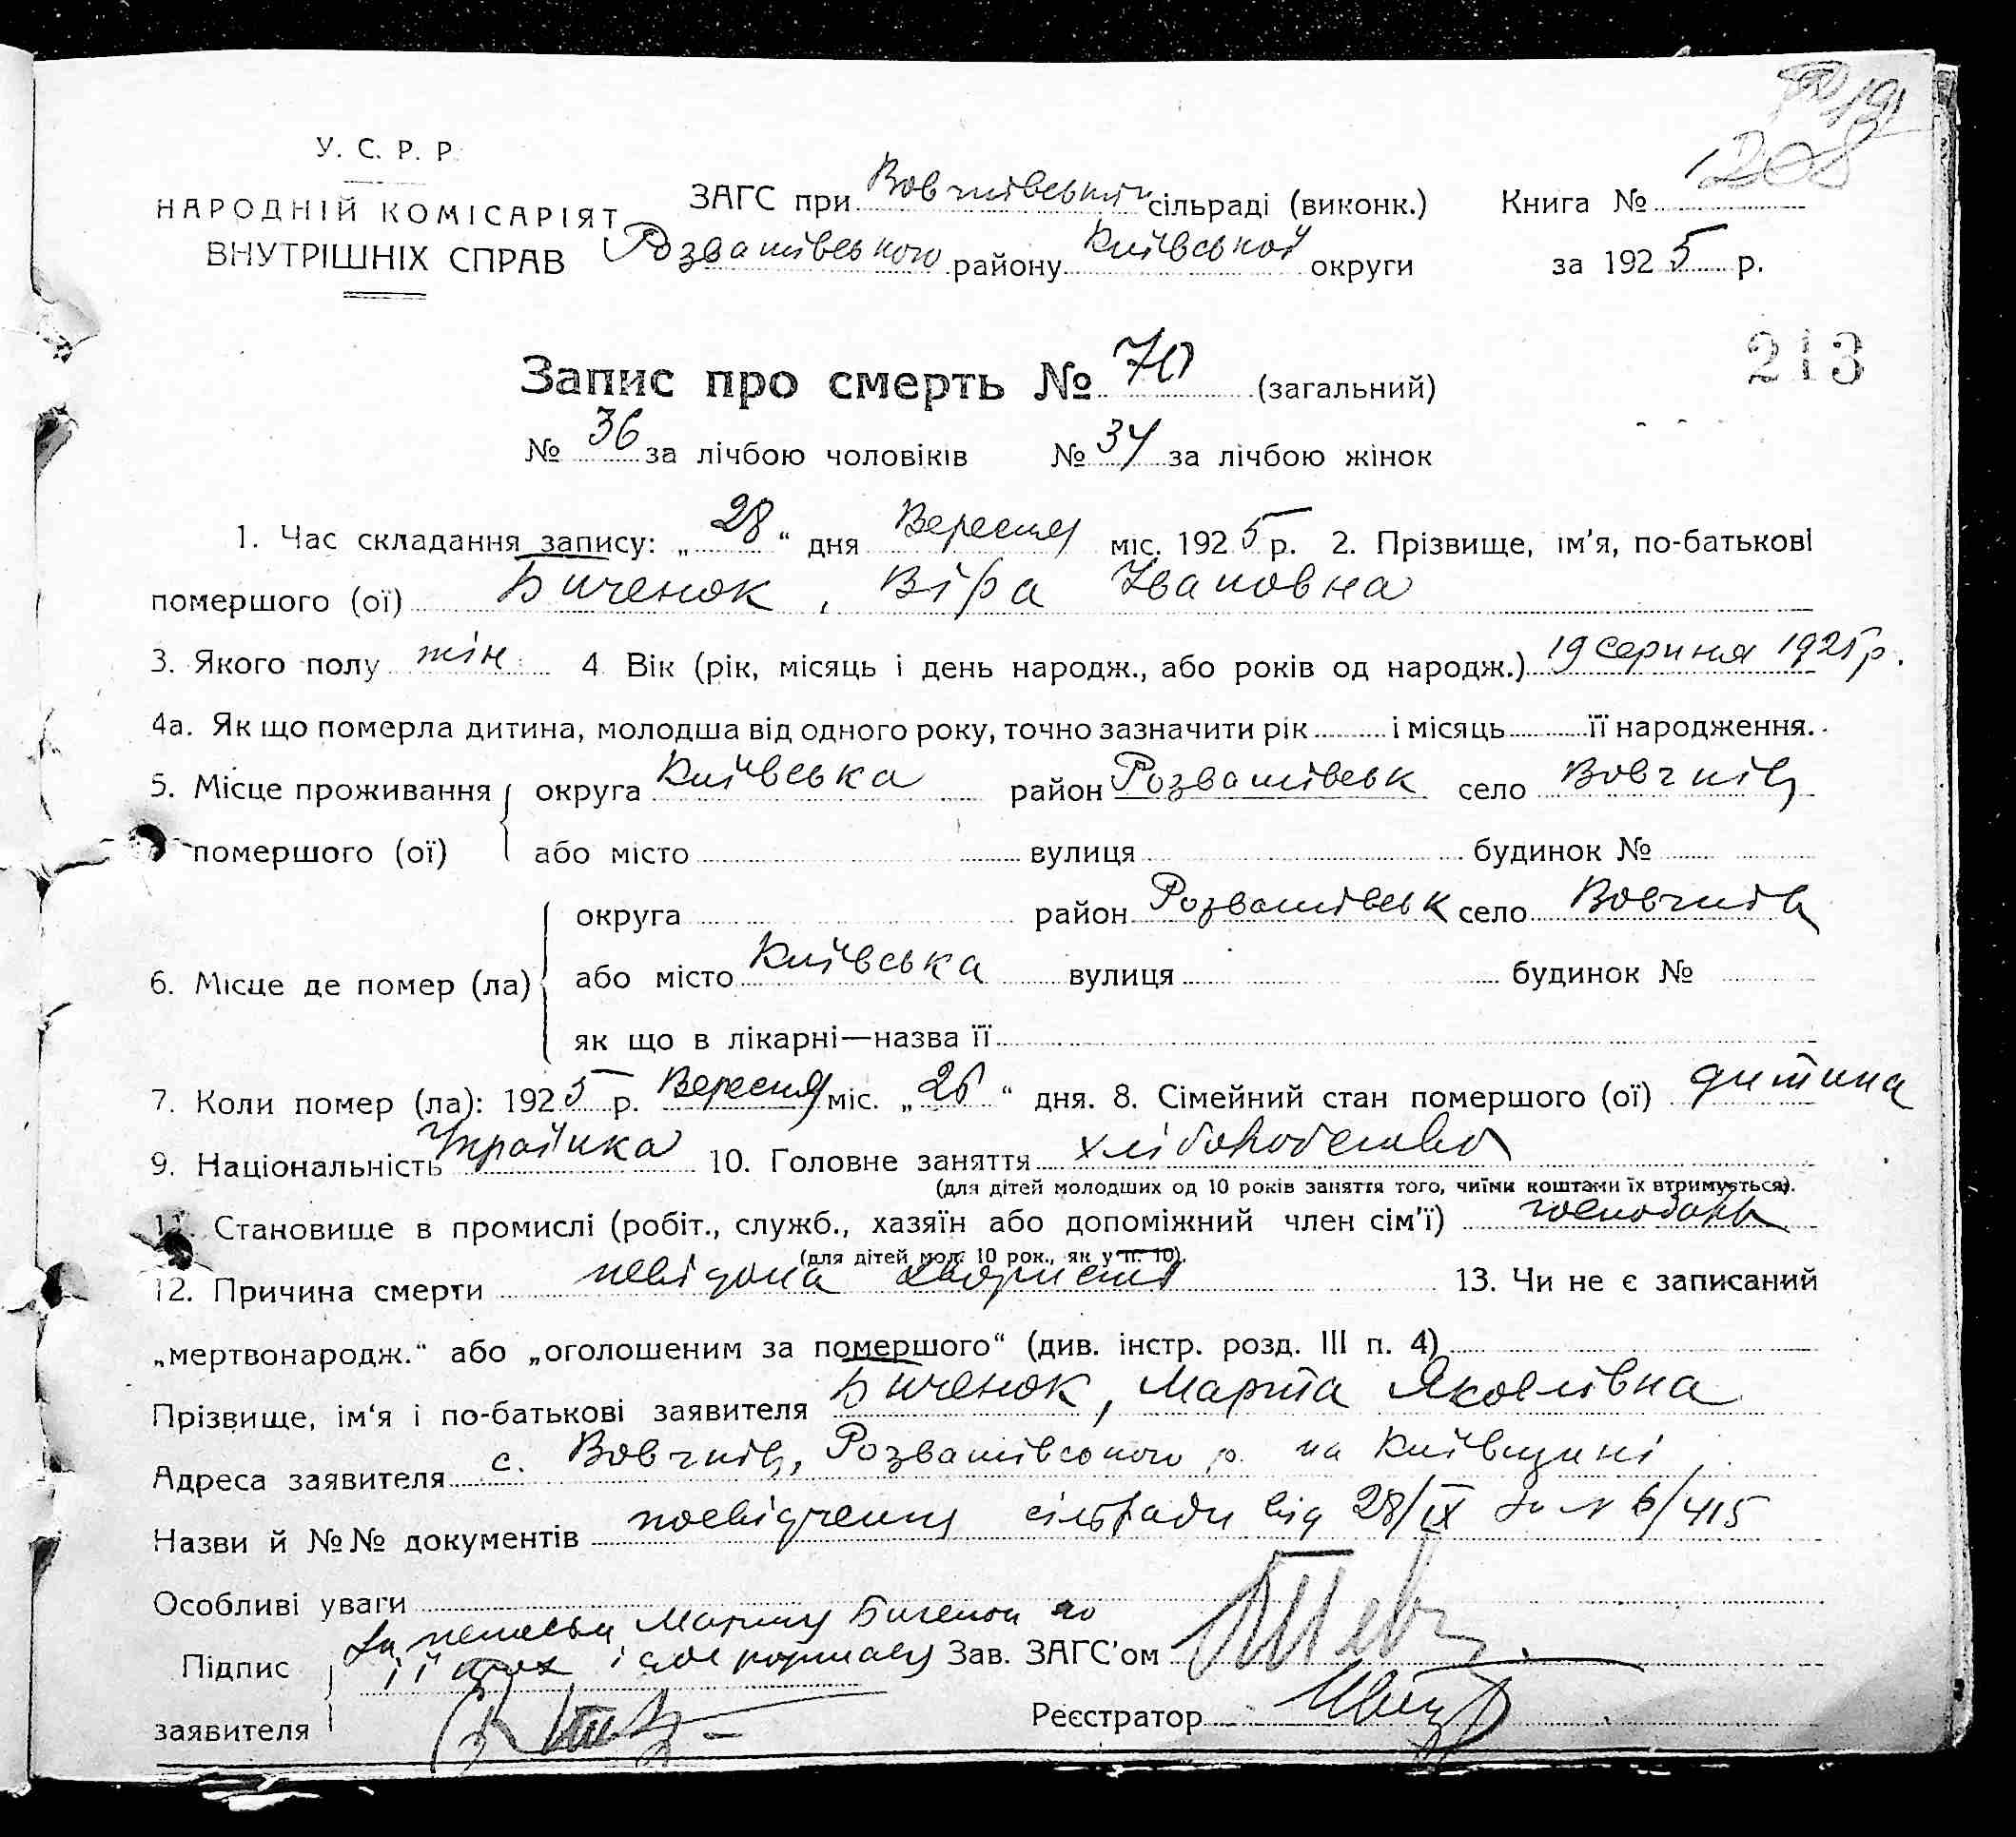 208
У. С. Р. Р.
НАРОДНІЙ КОМІСАРІЯТ
ВНУТРІШНІХ СПРАВ
ЗАГС при Вовчківській сільраді (виконк.)
Розважівського району Київської округи
Книга №
за 1925 р.
213
Запис про смерть № 70 (загальний)
№ 36 за лічбою чоловіків № 34 за лічбою жінок
1. Час складання запису: „28“ дня Вересня міс. 1925 р. 2. Прізвище, ім'я, по-батькові
помершого (ої) Биченок, Віра Івановна
3. Якого полу жін. 4 Вік (рік, місяць і день народж., або років од народж.) 19 серпня 1925 р.
4а. Як що померла дитина, молодша від одного року, точно зазначити рік і місяць її народження.
5. Місце проживання округа Київська район Розважівськ село Вовчків
помершого (ої) або місто вулиця будинок №
округа район Розважівськ село Вовчків
6. Місце де помер (ла) або місто Київська вулиця будинок №
як що в лікарні—назва її
7. Коли помер (ла): 1925 р. Вересня міс. „26“ дня. 8. Сімейний стан помершого (ої) дитина
9. Національність Українка 10. Головне заняття хліборобство
(для дітей молодших од 10 років заняття того, чиїми коштами їх втримується).
11. Становище в промислі (робіт., служб., хазяїн або допоміжний член сім'ї) господарь
(для дітей мол. 10 рок., як у п. 10).
12. Причина смерти невідома 13. Чи не є записаний
„мертвонародж.“ або „оголошеним за помершого“ (див. інстр. розд. III п. 4)
Прізвище, ім'я і по-батькові заявителя Биченок, Марта Яковлівна
Адреса заявителя с. Вовчків, Розважівського р. на Київщині
Назви й №№ документів посвідчення сільради від 28/IX за № 6/415
Особливі уваги
За неписьм Биченок по
Підпис її Зав. ЗАГС'ом
заявителя Реєстратор